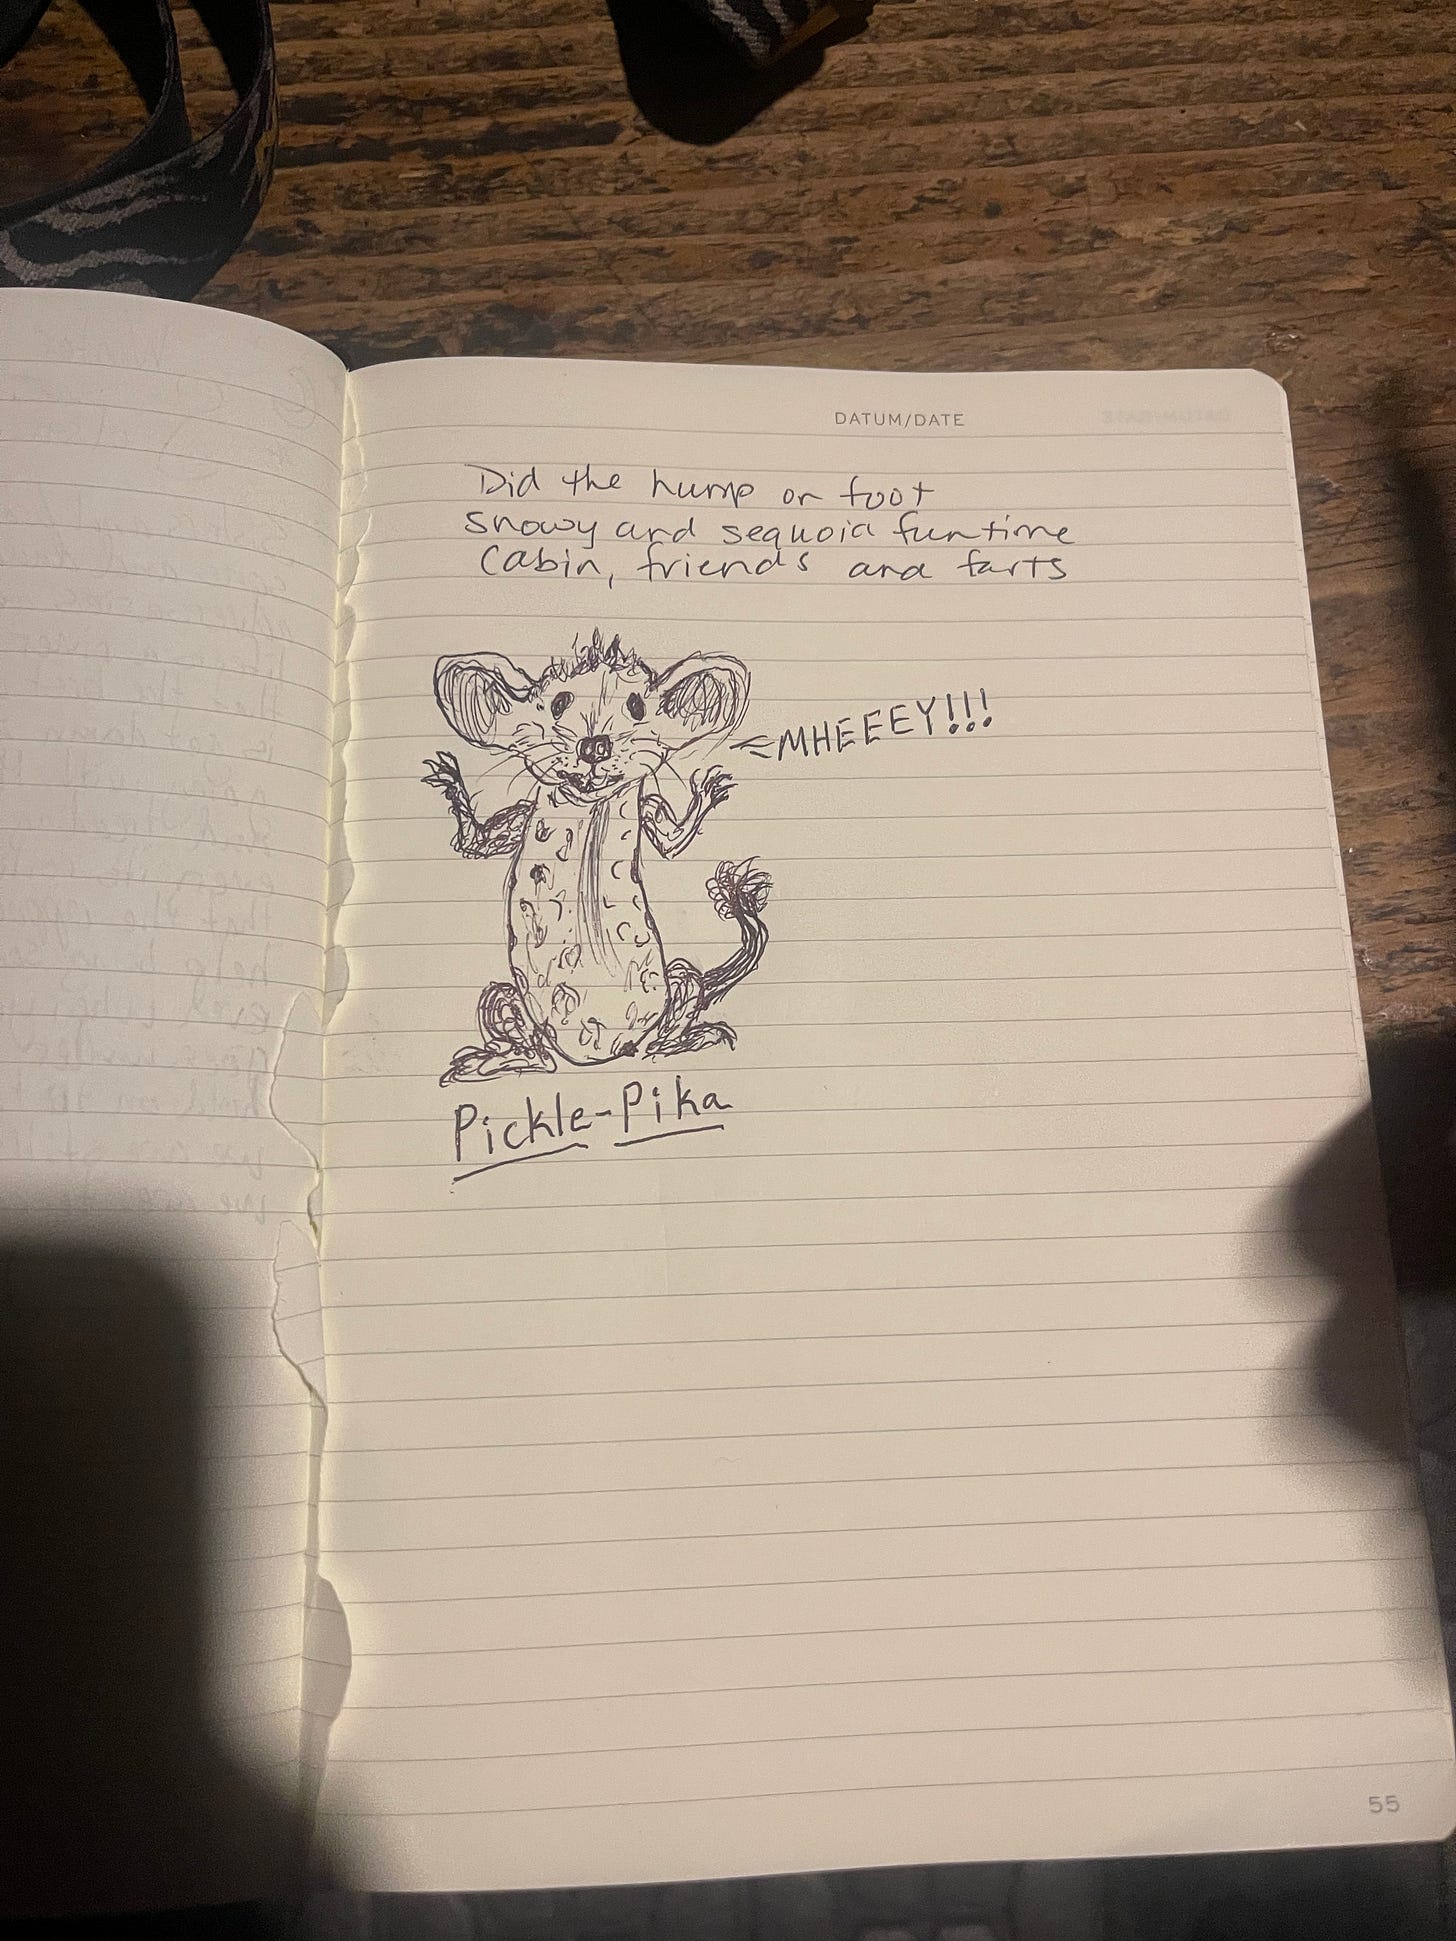 DATUM/DATE
Did the hump on foot
snowy and sequoia funtime
Cabin, friends and farts
MHEEEY!!!
Pickle-Pika
55